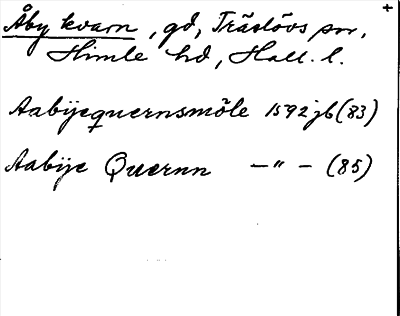 Åby kvarn, gd, Träslövs sn,
Himle hd, Hall. l.
Aabijequernsmöle 1592 jb (83)
Aabije Quernn —"— (85)